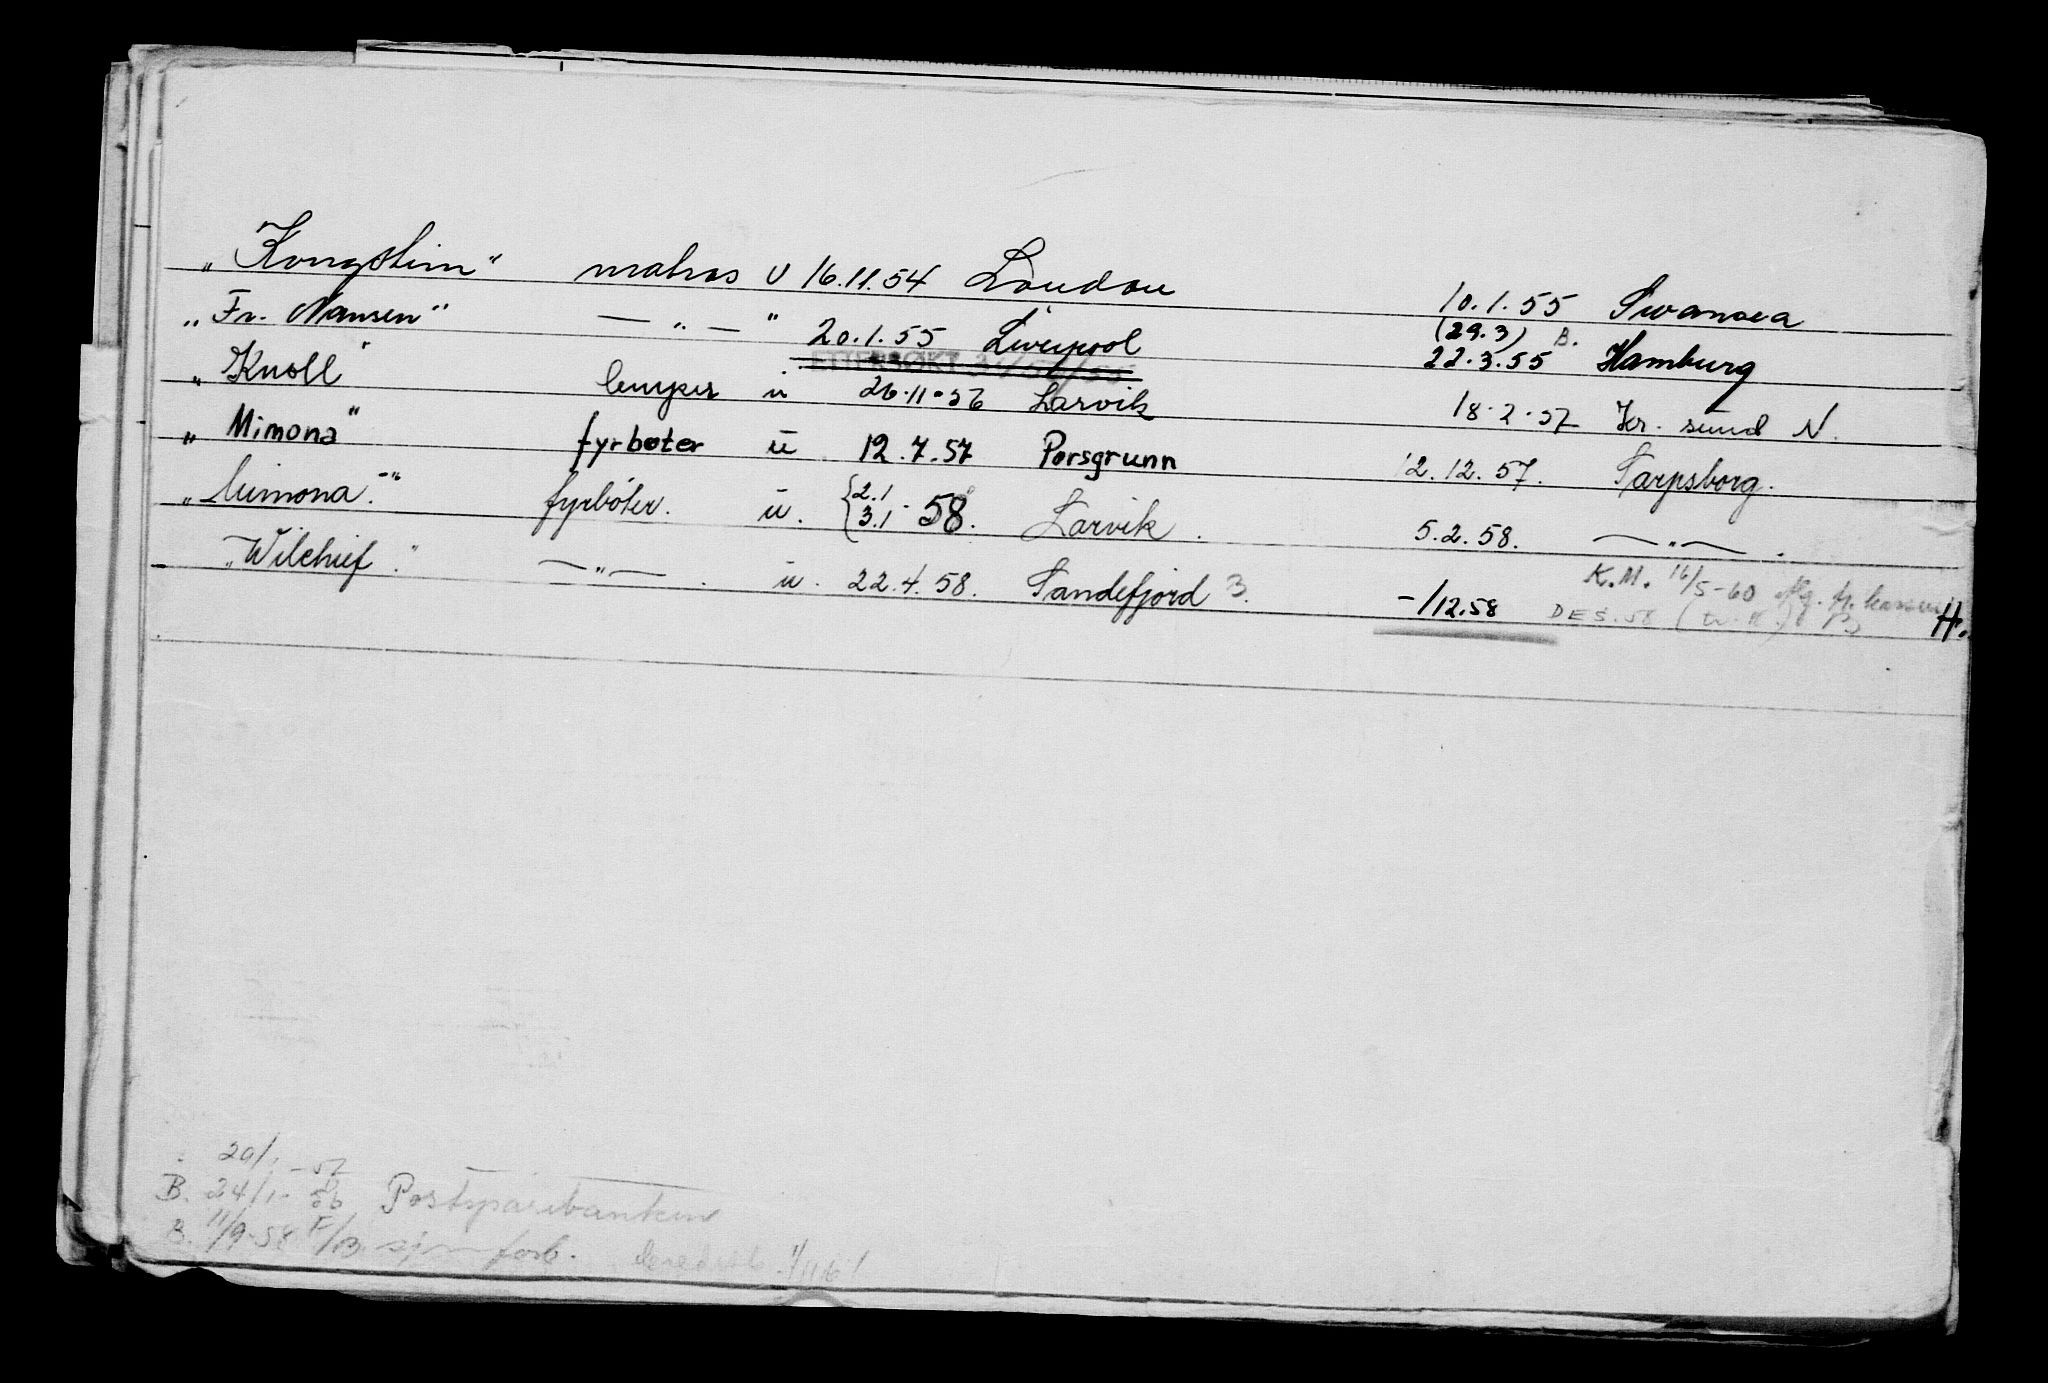 „Kongstein" matros u 16.11.54 London 10.1.55 Swansea
„Fr. Nansen" — „ — " 20.1.55 Liverpool (29.3) B. 22.3.55 Hamburg
ETTERSØKT
„Knoll" lemper u 26.11.56 Larvik 18.2.57 Kr. sund N.
„Mimona" fyrbøter u 12.7.57 Porsgrunn 12.12.57. Sarpsborg.
„Mimona." fyrbøter. u. {2.1 3.1 58. Larvik. 5.2.58. — „ — .
„Wilchief." — „ — . u. 22.4.58. Sandefjord B. -/12.58 DES.58 B H.
K.M. 16/5-60
29/1-57
B. 24/1-56 Postsparebanken
B. 11/9-58 F/B sjm forb.